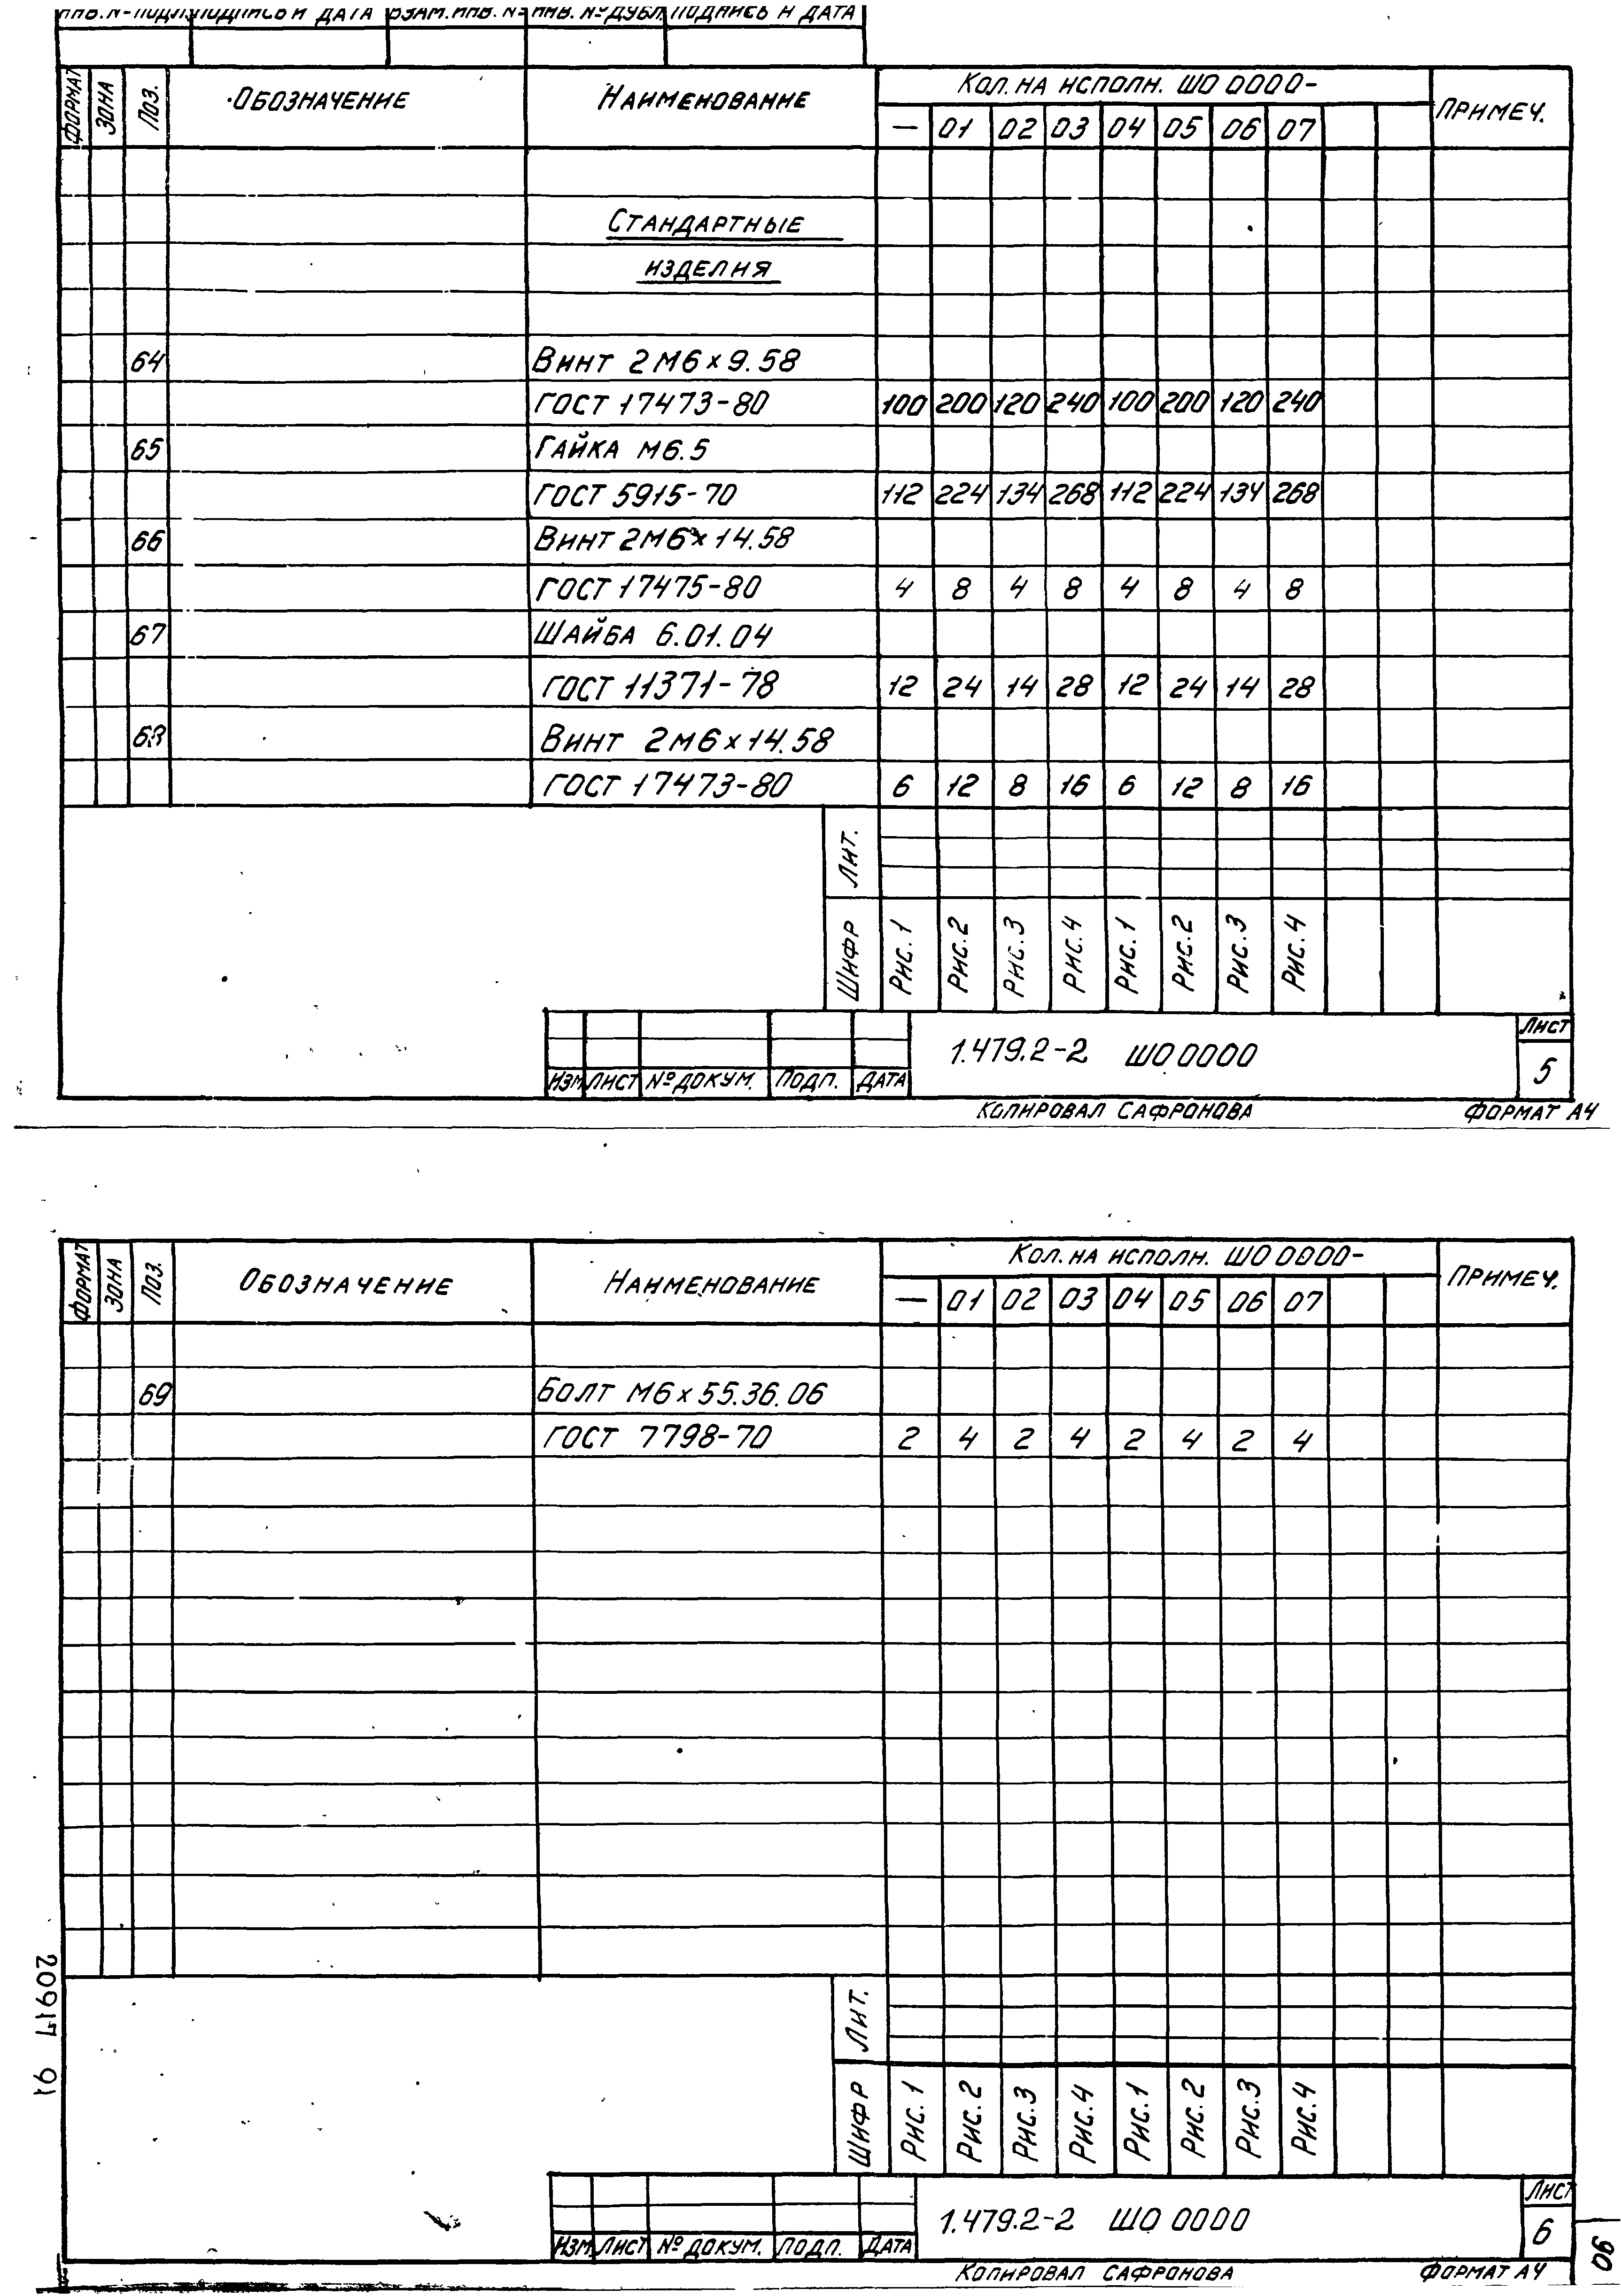 ИНВ. № ПОДЛ. ПОДПИСЬ И ДАТА ВЗАМ. ИНВ. № ИНВ. № ДУБЛ. ПОДПИСЬ И ДАТА
ФОРМАТ ЗОНА ПОЗ. ОБОЗНАЧЕНИЕ НАИМЕНОВАНИЕ КОЛ. НА ИСПОЛН. ШО 0000- ПРИМЕЧ.
— 01 02 03 04 05 06 07
СТАНДАРТНЫЕ
ИЗДЕЛИЯ
64 ВИНТ 2М6×9.58
ГОСТ 17473-80 100 200 120 240 100 200 120 240
65 ГАЙКА М6.5
ГОСТ 5915-70 112 224 134 268 112 224 134 268
66 ВИНТ 2М6×14.58
ГОСТ 17475-80 4 8 4 8 4 8 4 8
67 ШАЙБА 6.01.04
ГОСТ 11371-78 12 24 14 28 12 24 14 28
68 ВИНТ 2М6×14.58
ГОСТ 17473-80 6 12 8 16 6 12 8 16
ЛИТ.
ШИФР РИС.1 РИС.2 РИС.3 РИС.4 РИС.1 РИС.2 РИС.3 РИС.4
ИЗМ ЛИСТ № ДОКУМ. ПОДП. ДАТА
1.479.2-2 ШО 0000
ЛИСТ
5
КОПИРОВАЛ САФРОНОВА ФОРМАТ А4
ФОРМАТ ЗОНА ПОЗ. ОБОЗНАЧЕНИЕ НАИМЕНОВАНИЕ КОЛ. НА ИСПОЛН. ШО 0000- ПРИМЕЧ.
— 01 02 03 04 05 06 07
69 БОЛТ М6×55.36.06
ГОСТ 7798-70 2 4 2 4 2 4 2 4
ЛИТ.
ШИФР РИС.1 РИС.2 РИС.3 РИС.4 РИС.1 РИС.2 РИС.3 РИС.4
ИЗМ ЛИСТ № ДОКУМ. ПОДП. ДАТА
1.479.2-2 ШО 0000
ЛИСТ
6
КОПИРОВАЛ САФРОНОВА ФОРМАТ А4
20917 91
90